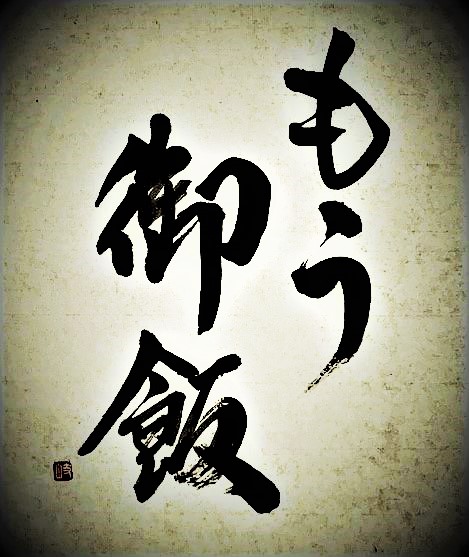 もう
御飯